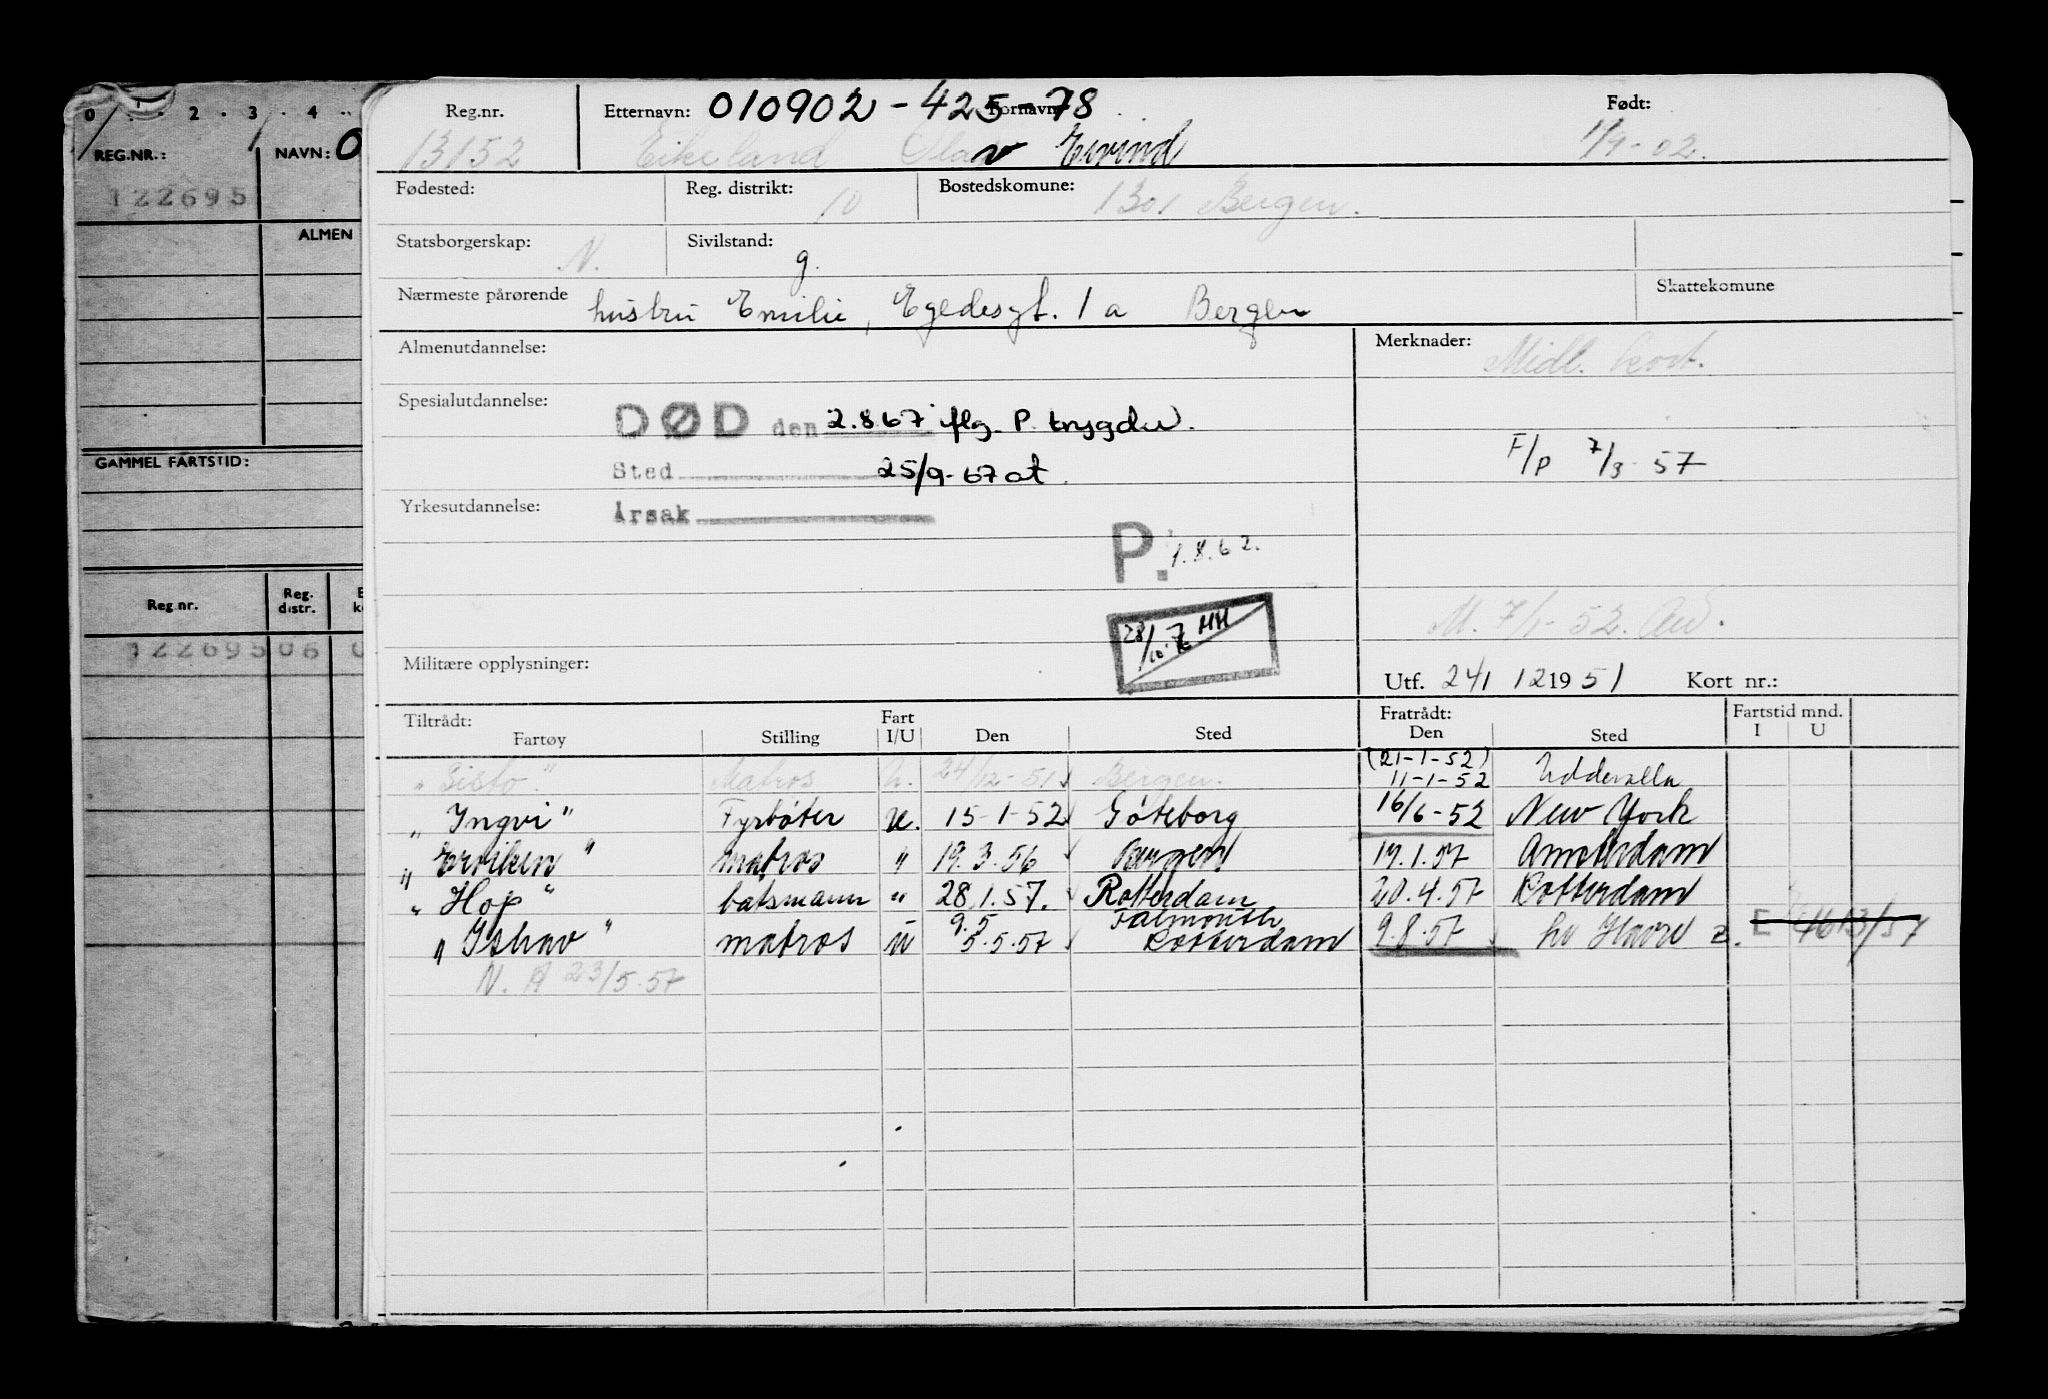 0 . . 2 . 3 . 4 . .
REG.NR.: NAVN: 0
122695
ALMEN
GAMMEL FARTSTID:
Reg.nr. Reg. distr.
122695 06 0
Reg.nr. Etternavn: 010902-425-78 Fornavn: Født:
13152 Eikeland Olav Eivind 1/9-02.
Fødested: Reg. distrikt: 10 Bostedskomune: 1301 Bergen.
Statsborgerskap: N. Sivilstand: g.
Nærmeste pårørende hustru Emilie, Egedesgt. 1 a Bergen Skattekomune
Almenutdannelse: Merknader: Midl. kort.
Spesialutdannelse: DØD den 2.8.67 iflg. P. trygden.
F/P 7/3-57
Sted 25/9-67
Yrkesutdannelse: Årsak
P. 1.8.62.
28/10 HH
M. 7/1-52.
Militære opplysninger:
Utf. 24/12 1951 Kort nr.:
Tiltrådt: Fart Fratrådt: Fartstid mnd.
Fartøy Stilling I/U Den Sted Den Sted I U
(21-1-52)
"Sisto" Matros U. 24/12-51 Bergen. 11-1-52 Uddevalla
"Ingvi" Fyrbøter U. 15-1-52 Göteborg 16/6-52 New York
matros " 19.3.56 Bergen 19.1.57 Amsterdam
"Hop" båtsmann " 28.1.57. Rotterdam 20.4.57 Rotterdam
9.5 Falmouth
"Ishav" matros u 5.5.57 Rotterdam 9.8.57 Le Havre E 4613/57
N. A 23/5.57